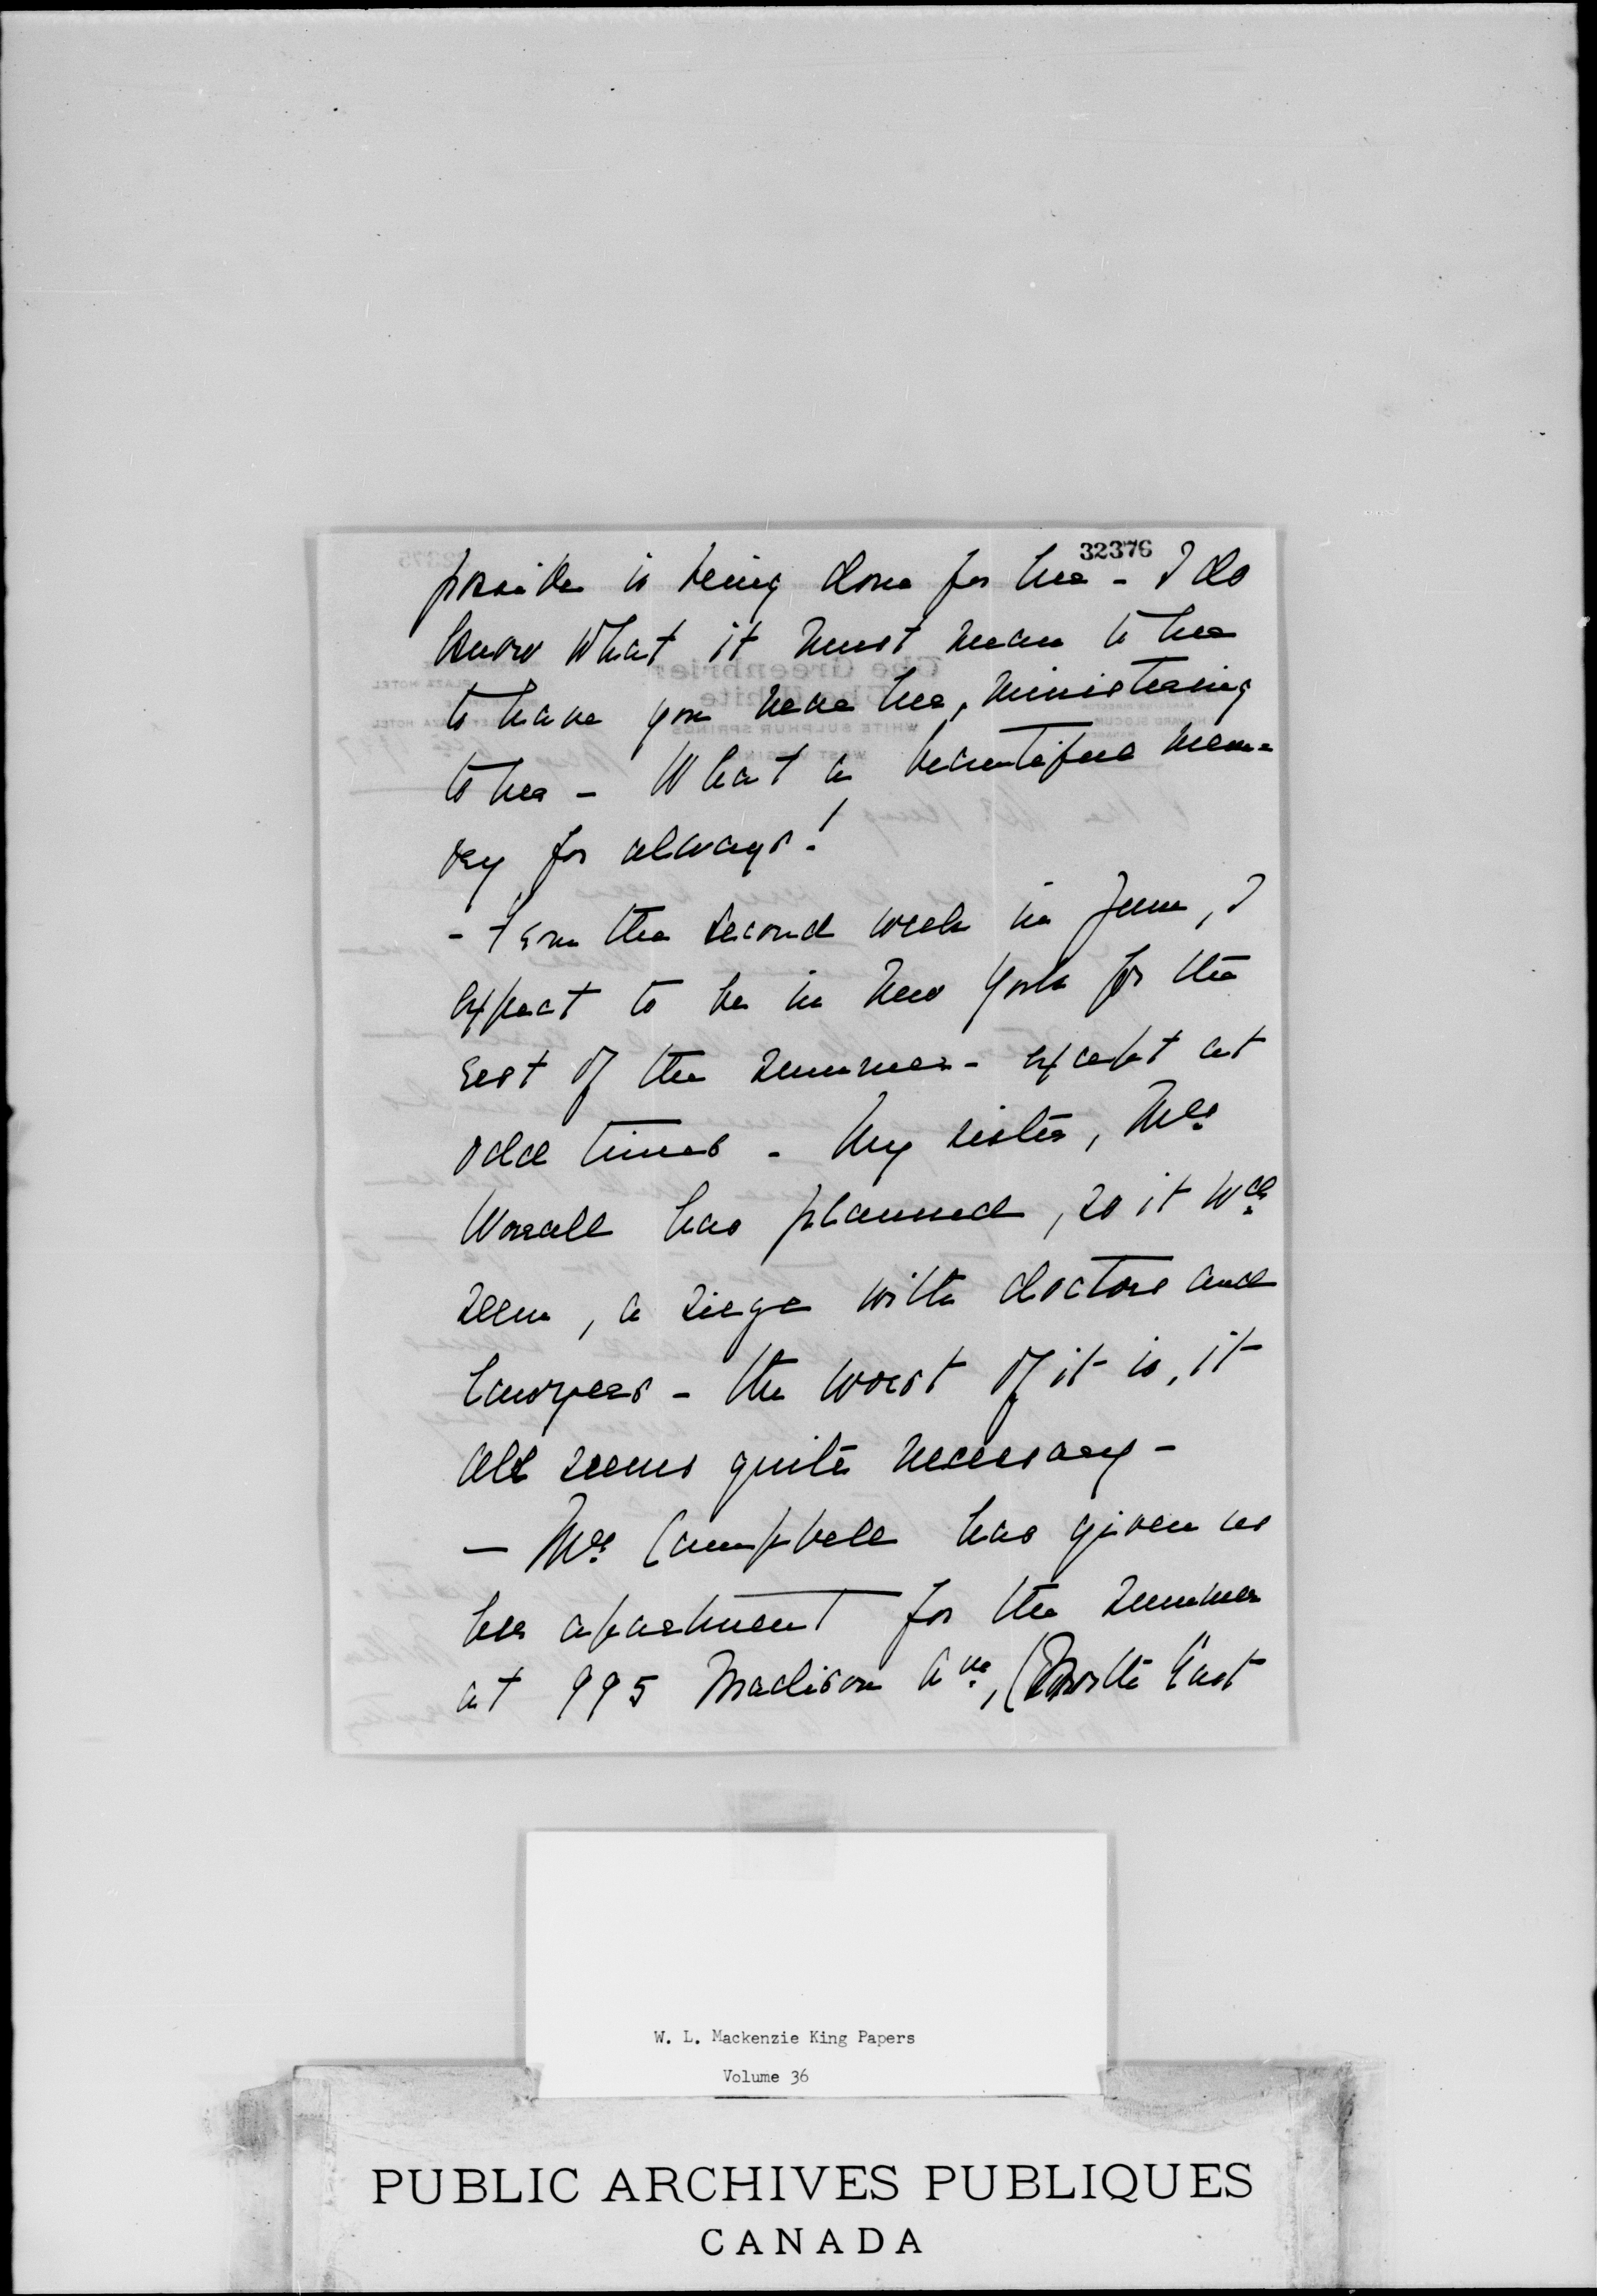 32376
possible is being done for her - I do
know what it must mean to her
to have you near her, ministering
to her - What a beautiful mem=
ory for always!
- From the second week in June, I
expect to be in New York for the
rest of the summer - except at
odd times - My sister, Mrs
Worrall has planned, so it wd
seem, a siege with doctors and
lawyers - the worst of it is, it
all seems quite necessary -
- Mrs Campbell has given us
her apartment for the summer
at 995 Madison Ave, (North East
W. L. Mackenzie King Papers
Volume 36
PUBLIC ARCHIVES PUBLIQUES
CANADA